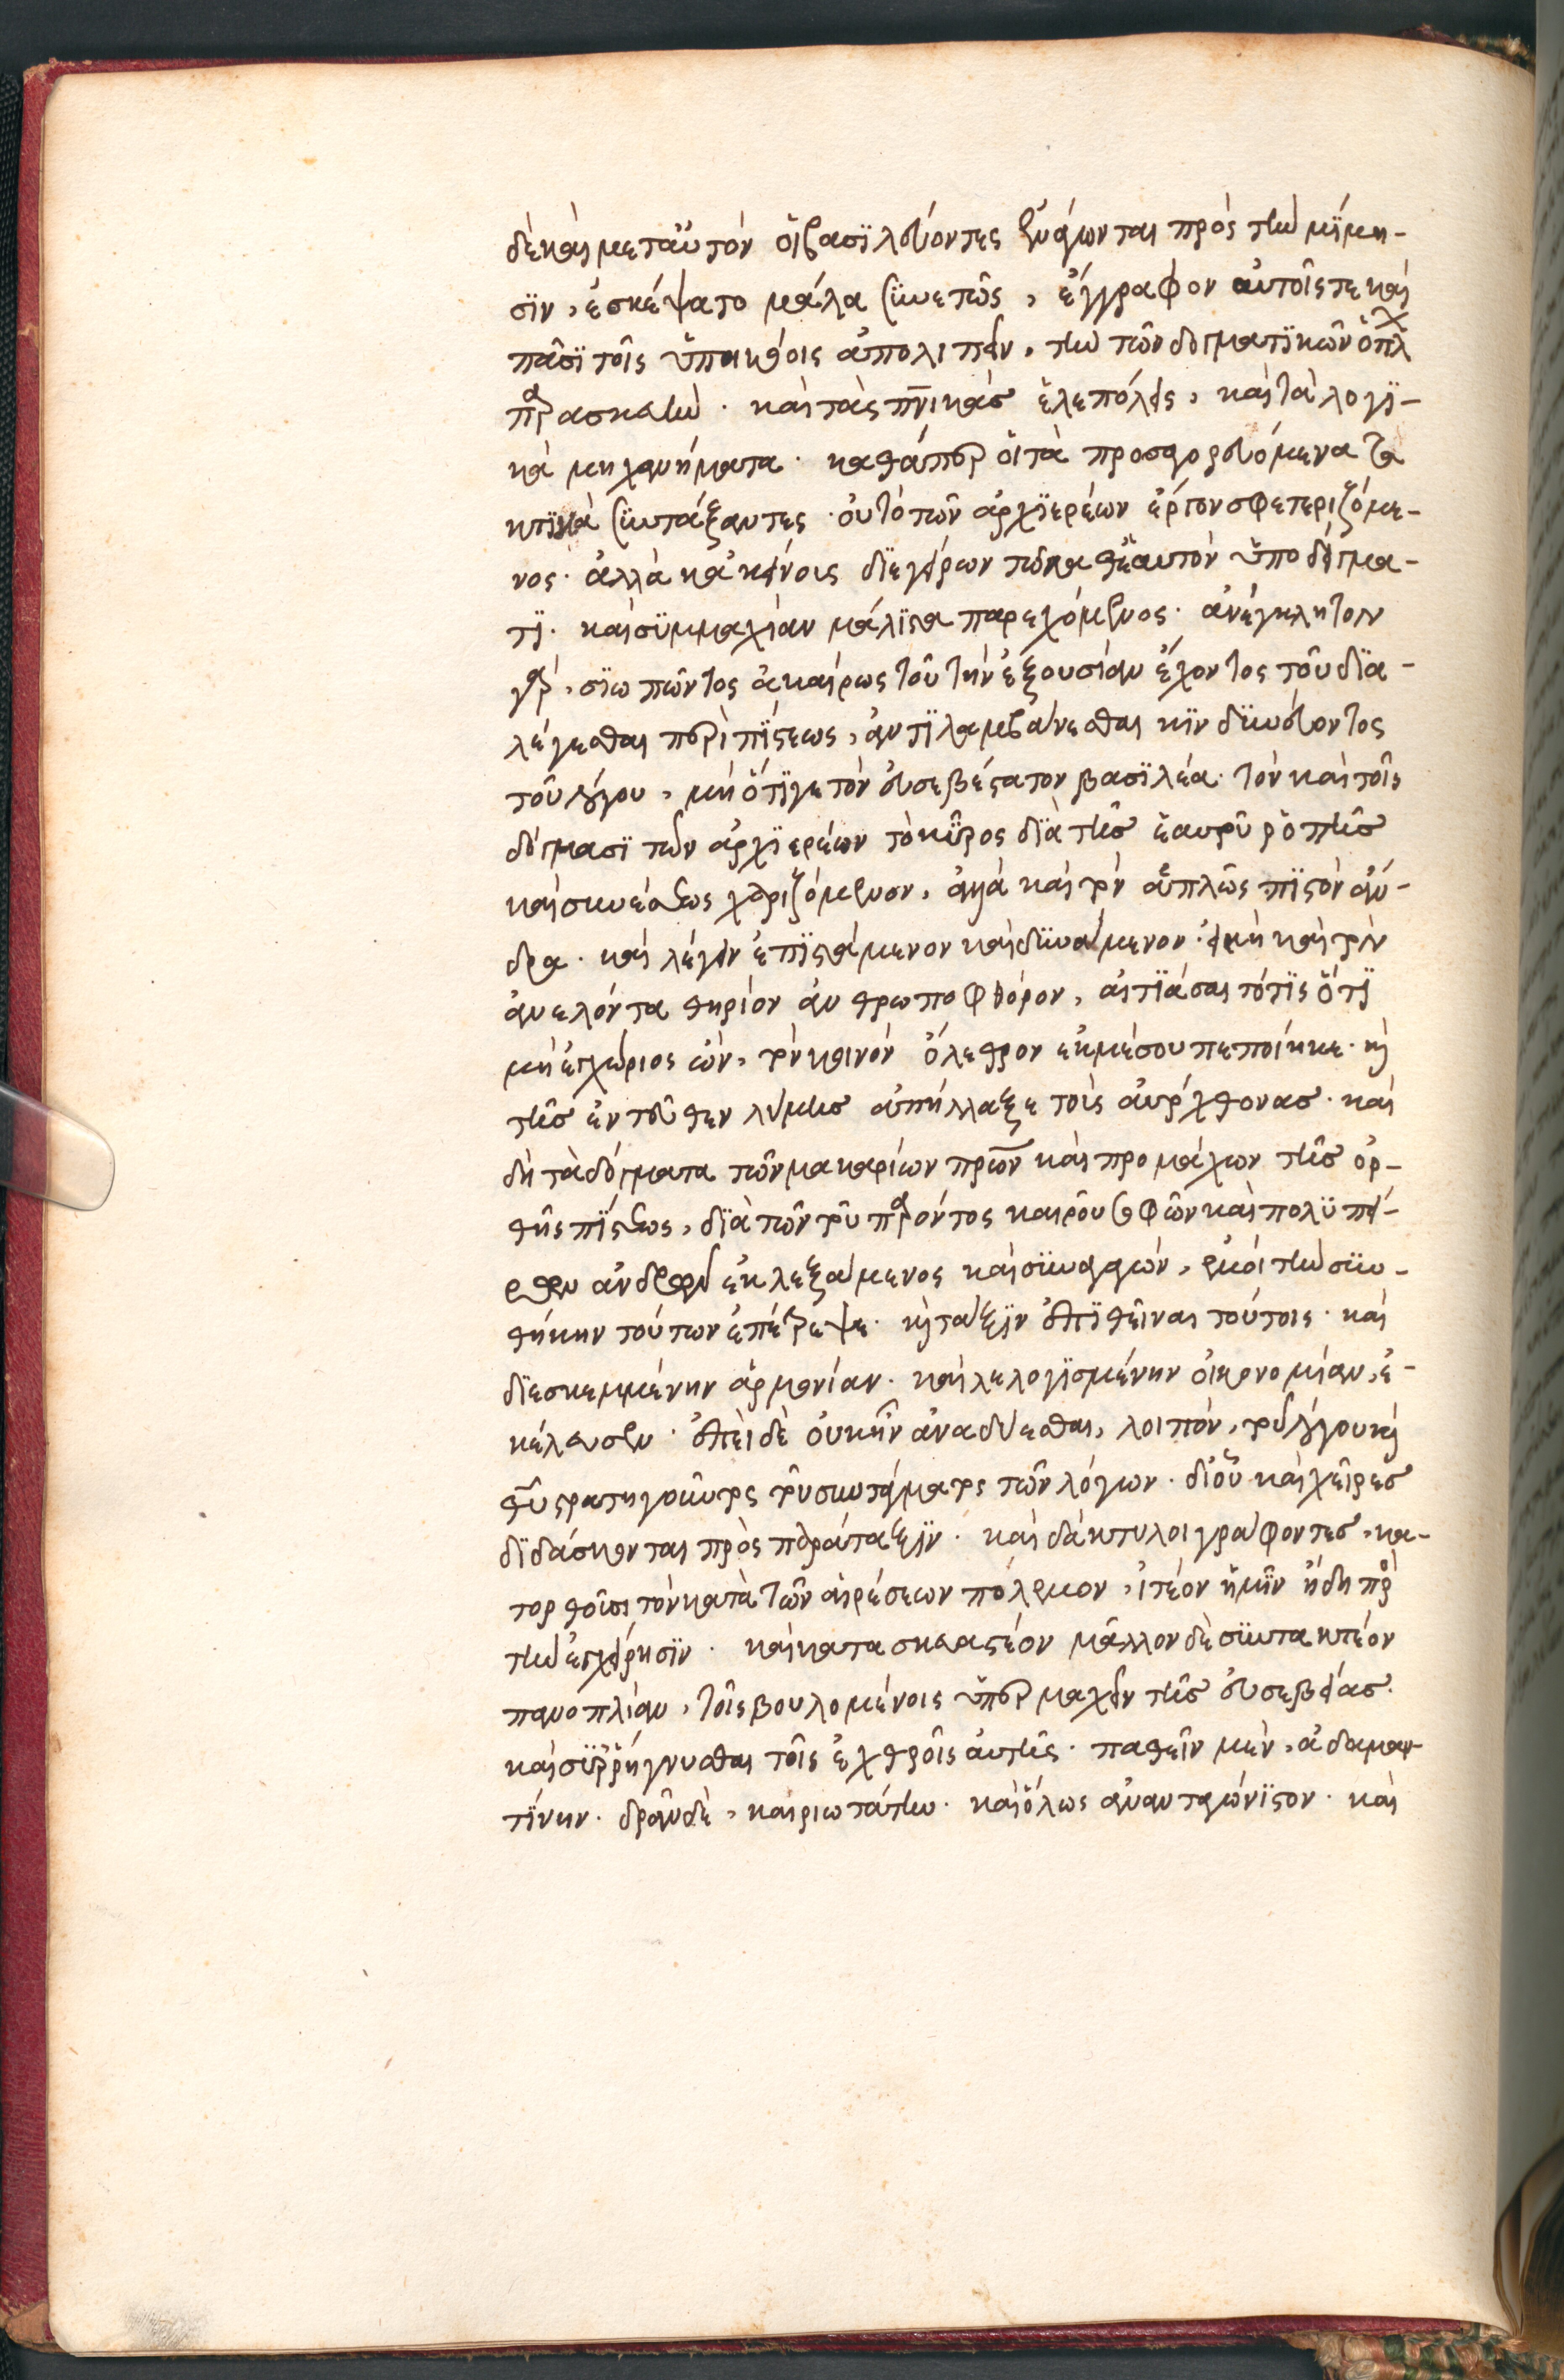 δὲ καὶ μετ' αὐτὸν οἱ βασιλεύοντες ἐνάγωνται πρὸς τὴν μίμη-
σιν, ἐσκέψατο μάλα συνετῶς, ἔγγραφον αὐτοῖς τε καὶ
πᾶσι τοῖς ὑπηκόοις ἀπολιπεῖν, τὴν τῶν δογματικῶν ὅπλ
παρασκευὴν. καὶ τὰς πνικὰς ἑλεπόλεις, καὶ τὰ λογι-
κὰ μηχανήματα. καθάπερ οἱ τὰ προσαγορευόμενα τα
κτικὰ συντάξαντες. οὐ τὸ τῶν ἀρχιερέων ἔργον σφετεριζόμε-
νος. ἀλλὰ κἀκείνους διεγείρων τῷ καθ' ἑαυτὸν ὑποδείγμα-
τι. καὶ συμμαχίαν μάλιστα παρεχόμενος. ἀνέγκλητον
γὰρ, σιωπῶντος ἀκαίρως τοῦ τὴν ἐξουσίαν ἔχοντος τοῦ δια-
λέγεσθαι περὶ πίστεως, ἀντιλαμβάνεσθαι κινδυνεύοντος
τοῦ λόγου, μὴ ὅτι γε τὸν εὐσεβέστατον βασιλέα. τὸν καὶ τοῖς
δόγμασι τῶν ἀρχιερέων τὸ κῦρος διὰ τῆς ἑαυτοῦ ῥοπῆς
καὶ χαριζόμενον, ἀλλὰ καὶ τὸν ἁπλῶς πιστὸν ἄν-
δρα. καὶ λέγειν ἐπιστάμενον καὶ δυνάμενον. καὶ τὸν
ἀνελόντα θηρίον ἀνθρωποφθόρον, αἰτιάσαιτό τις ὅτι
μὴ ἐγχώριος ὤν, τὸν κοινὸν ὄλεθρον ἐκ μέσου πεποίηκε. καὶ
τῆς ἐντεῦθεν λύμης ἀπήλλαξε τοὺς αὐτόχθονας. καὶ
δὴ τὰ δόγματα τῶν μακαρίων πρων καὶ προμάχων τῆς ὀρ-
θῆς πίστεως, διὰ τῶν τοῦ παρόντος καιροῦ σοφῶν καὶ πολυπεί-
ρων ἀνδρῶν ἐκλεξάμενος καὶ συναγαγών, ἐμοὶ τὴν συν-
θήκην τούτων ἐπέτρεψε. καὶ τάξιν ἐπιθεῖναι τούτοις. καὶ
διεσκεμμένην ἁρμονίαν. καὶ λελογισμένην οἰκονομίαν, ἐ-
κέλευσεν. ἐπεὶ δὲ οὐκ ἦν ἀναδύεσθαι, λοιπόν, τοῦ λόγου καὶ
τοῦ στρατηγοῦντος τοῦ συντάγματος τῶν λόγων. δι' οὗ καὶ χεῖρες
διδάσκονται πρὸς παράταξιν. καὶ δάκτυλοι γράφοντες, κα-
τορθοῦσι τὸν κατὰ τῶν αἱρέσεων πόλεμον, ἰτέον ἡμῖν ἤδη πρὸ
τὴν ἐγχείρησιν. καὶ κατασκευαστέον μᾶλλον δὲ συντακτέον
πανοπλίαν, τοῖς βουλομένοις ὑπερμαχεῖν τῆς εὐσεβείας.
καὶ συρρήγνυσθαι τοῖς ἐχθροῖς αὐτῆς. παθεῖν μὲν, ἀδαμαν-
τίνην. δρᾶν δὲ, καιριωτάτην. καὶ ὅλως ἀνανταγώνιστον. καὶ